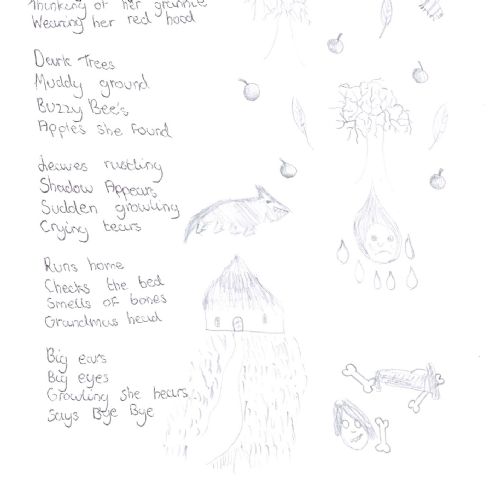 Thinking of her grannie
Wearing her red hood
Dark Trees
Muddy ground
Buzzy Bee's
Apples she found
Leaves rustling
Shadow Appears
Sudden growling
Crying tears
Runs home
Checks the bed
Smells of bones
Grandmas head
Big ears
Big eyes
Growling she hears
Says Bye Bye